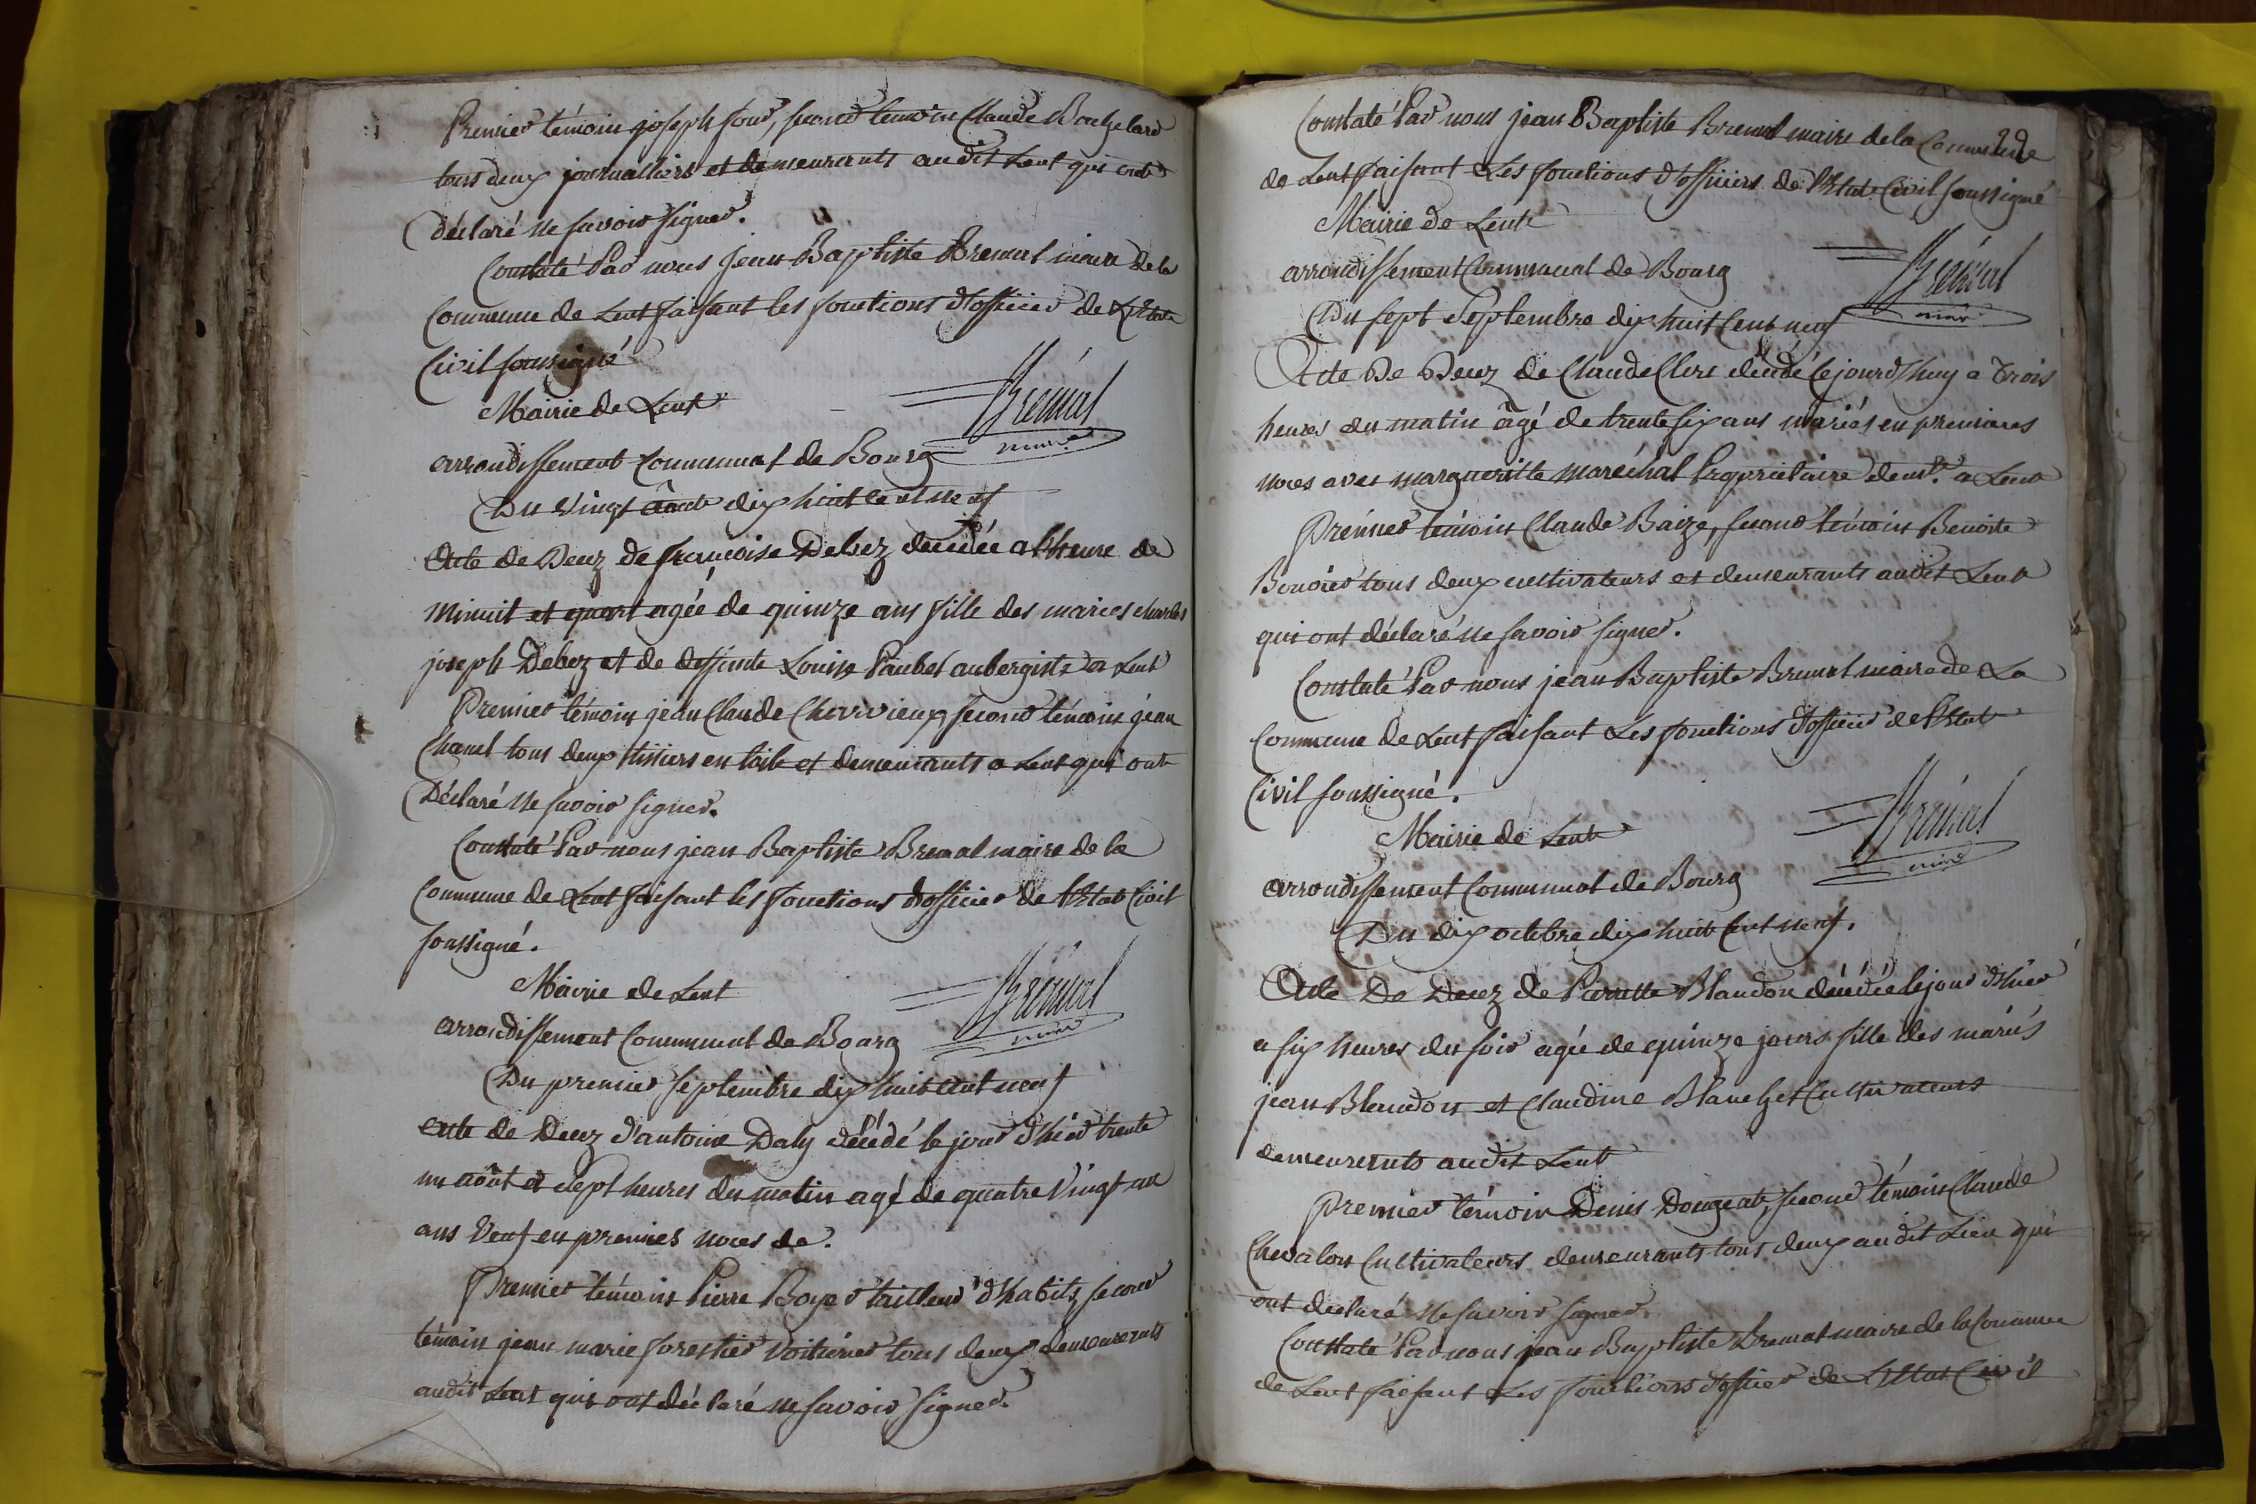 Premier témoin joseph four, second temoin Claude Bachelard
tous deux journalliers et demeurants audit Lent qui ont
déclaré ne savoir signer.
Constaté Par nous Jean Baptiste Bremal maire de la
Commune de Lent faisant les fonctions d'officier de L'Etat
Civil soussigné
Mairie de Lent
Bremal
maire
arrondissement Communal de Bourg
Du Vingt août dix huit cent neuf
Acte de Decez de francoise Debez decédée a l'heure de
Minuit et quart agée de quinze ans fille des mariés charles
joseph Debez et de deffunte Louise Paubel aubergiste a Lent
Premier témoin jean Claude Chervieux second témoin jean
Chanel tous deux tissiers en toile et demeurants a Lent qui ont
Déclaré ne savoir signer.
Constaté Par nous jean Baptiste Bremal maire de la
Commune de Lent faisant les fonctions d'officier de l'Etat Civil
soussigné.
Mairie de Lent
Bremal
maire
arrondissement Communal de Bourg
Du premier septembre dix huit cent neuf
acte de Decez d'antoine Daly décédé le jour d'hier trente
un août a sept heures du matin agé de quatre Vingt un
ans Veuf en premieres noces de.
Premier témoin Pierre Boyer tailleur d'habits, second
témoin jean marie forestier voiturier tous deux demeurants
audit Lent qui ont déclaré ne savoir signer.
Constaté Par nous jean Baptiste Bremal maire de la Commune
de Lent faisant Les fonctions d'officiers de l'Etat Civil soussigné
Mairie de Lent
Bremal
maire
arrondissement Communal de Bourg
Du sept Septembre dix huit Cent neuf
Acte De Decez de Claude Clerc décédé cejourd'huy a trois
heures du matin âgé de trente six ans mariés en premieres
noces avec margueritte maréchal Propriétaire demt. a Lent
Premier témoin Claude Baize, second témoin Benoite
Bouvier tous deux cultivateurs et demeurants audit Lent
qui ont déclaré ne savoir signer.
Constaté Par nous jean Baptiste Bremal maire de La
Commune de Lent faisant Les fonctions d'officier de l'Etat
Civil soussigné.
Bremal
maire
Mairie de Lent
arrondissement Communal de Bourg
Du dix octobre dix huit Cent neuf.
Acte De Decez de Pierrette Blandon décédée le jour d'hier
a six heures du soir agée de quinze jours fille des mariés
jean Blandon et Claudine Blanchet Cultivateurs
demeurents audit Lent
Premier témoin Denis Dougeat, second témoin Claude
Chevalon Cultivateurs demeurants tous deux audit Lieu qui
ont declaré ne savoir signer
Constaté Par nous jean Baptiste Bremal maire de la Commune
de Lent faisant Les fonctions d'officier de L'Etat Civil